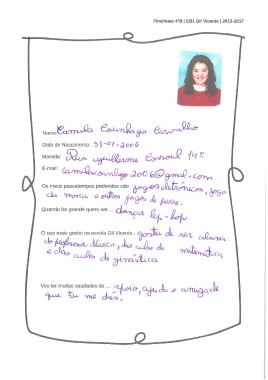 Finalistas 4ºB | EB1 Gil Vicente | 2013-2017
Nome: Camila Carvalho
Data de Nascimento: 31-01-2006
Morada: Rua Guilherme 14º
E-mail:
Os meus passatempos preferidos são: jogos eletrónicos, jogo
da mosca e outros jogos de
Quando for grande quero ser... dançar hip-hop
O que mais gostei na escola Gil Vicente... gostei de ser aluna
do professor Marco, das aulas de matemática
e das aulas de ginástica
Vou ter muitas saudades de ... apoio, ajuda e amizade
que tu me dás.